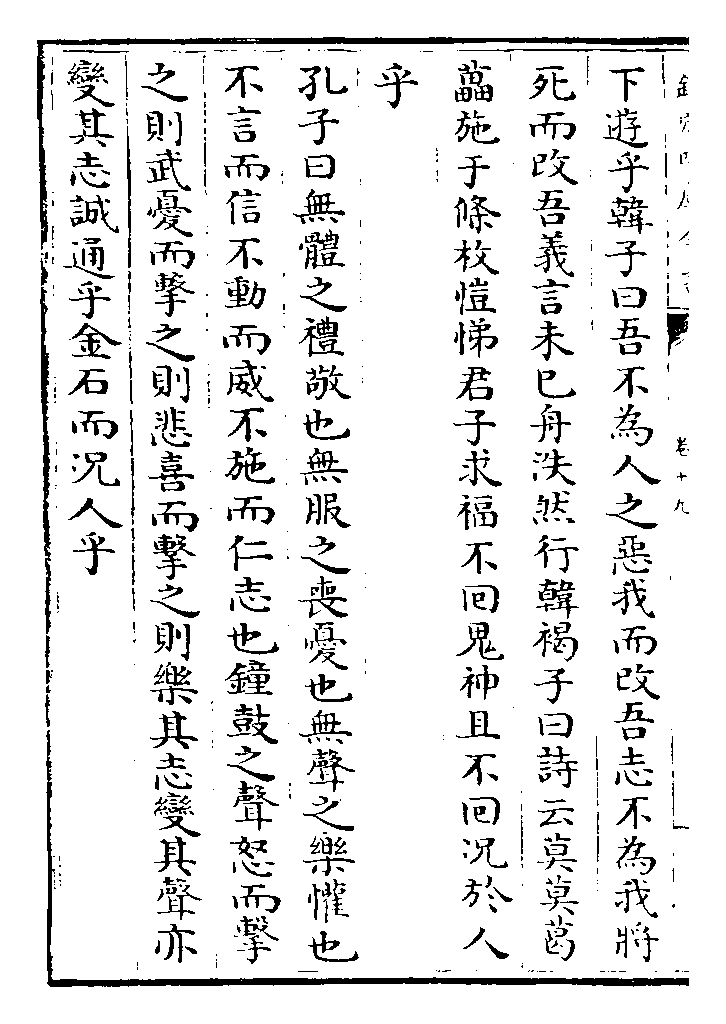 卷十九
下遊乎韓子曰吾不為人之惡我而改吾志不為我將
死而改吾義言未已舟泆然行韓褐子曰詩云莫莫葛
藟施于條枚愷悌君子求福不回鬼神且不回况於人
乎
孔子曰無體之禮敬也無服之喪憂也無聲之樂懽也
不言而信不動而威不施而仁志也鐘鼓之聲怒而擊
之則武憂而擊之則悲喜而擊之則樂其志變其聲亦
變其志誠通乎金石而况人乎